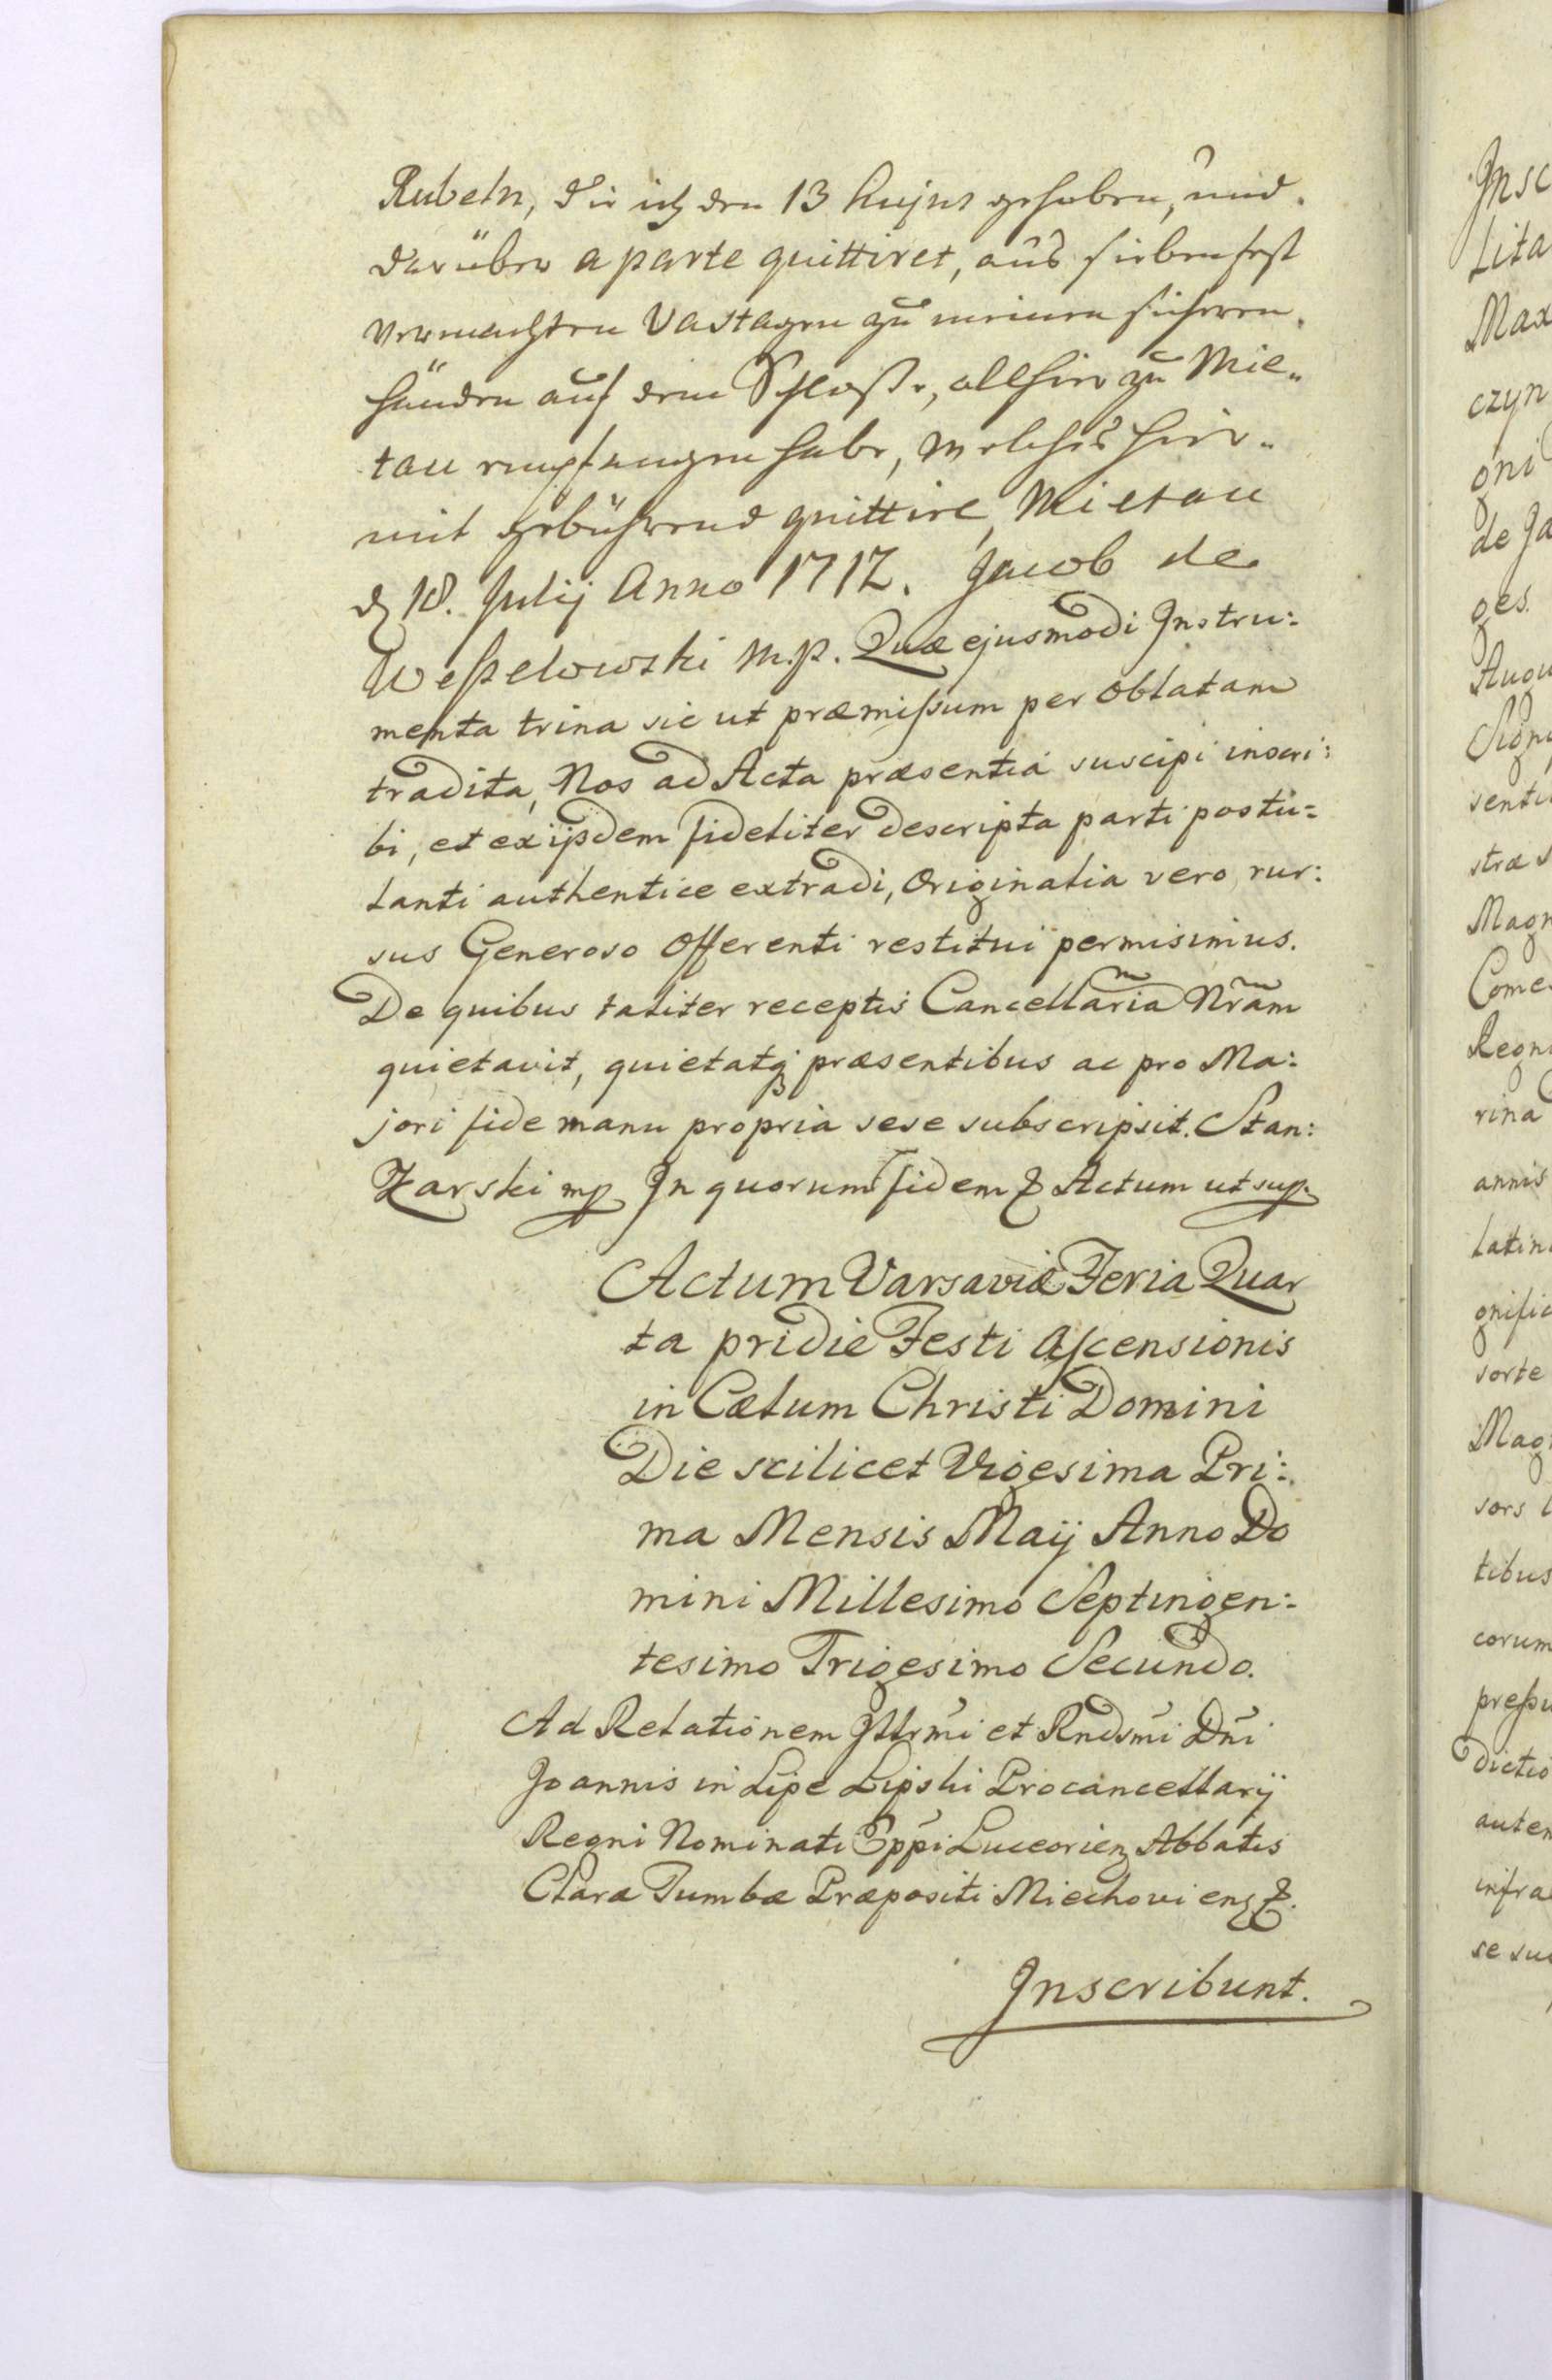 Rubeln, die ich den 13 hujus gehoben, und
darüber a parte quittiret, aus sieben fest
vermachten Vastagen zu meinen sicheren
händen auf dem Schloße, allhier zu Mie„
tau empfangen habe, welches hier„
mit gebührend quittire, Mietau
d 18. Julij Anno 1712. Jacob de
Weßelowski m.p. Quæ ejusmodi Instru:
menta trina sic ut præmissum per oblatam
tradita, Nos ad Acta præsentia suscipi inscri:
bi, et ex ijsdem fideliter descripta parti postu=
lanti authentice extradi, Originalia vero rur:
sus Generoso Offerenti restitui permisimus.
De quibus taliter receptis Cancellariã Nr̃am
quietavit, quietatq præsentibus ac pro Ma:
jori fide manu propria sese subscripsit. Stan:
Żarski mp In quorum fidem & Actum ut sup.
Actum Varsaviæ Feria Quar
ta pridie Festi Ascensionis
in Cælum Christi Domini
Die scilicet Vigesima Pri:
ma Mensis Maij Anno Do
mini Millesimo Septingen:
tesimo Trigesimo Secundo.
Ad Relationem Illrm̃i et Rndsm̃i Dñi
Joannis in Lipe Lipski Procancellarij
Regni Nominati Epp̃i Luceorien Abbatis
Claræ Tumbæ Præpositi Miechovien &.
Inscribunt.
Insc
Lita
Max
czyn
gni
de Ja
ges.
Augu
Signi
senti
stræ S
Magn
Come
Regni
rina
annis
Latin
gnific
sorte
Mag
sors l
tibus
corum
preßu
dictio
autem
infra
se su